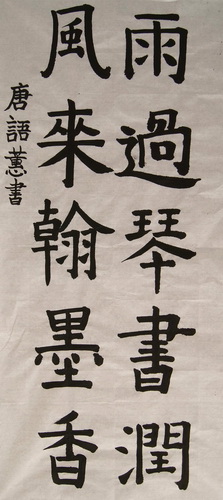 雨過琴書潤
風來翰墨香
唐語蕙書